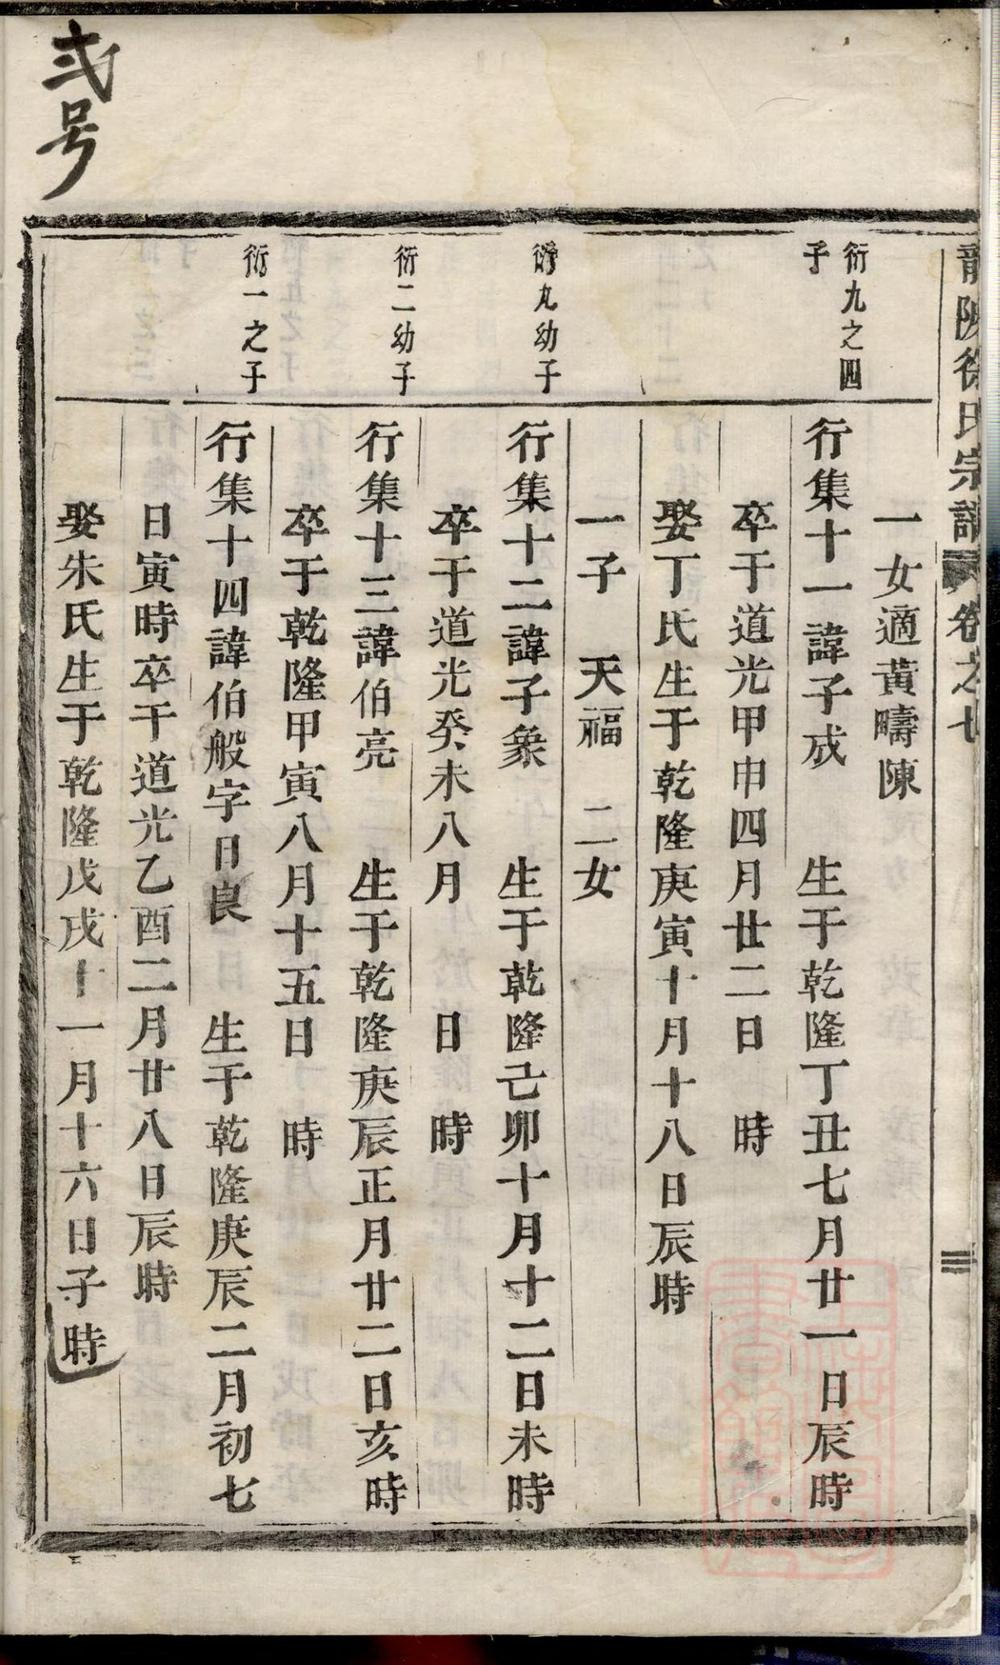 弍号
龍陂徐氏宗譜 卷之七
一女適黃疇陳
衍九之四
子
行集十一諱子成 生于乾隆丁丑七月廿一日辰時
卒于道光甲申四月廿二日 時
娶丁氏生于乾隆庚寅十月十八日辰時
一子 天福 二女
衍九幼子
行集十二諱子象 生于乾隆己卯十月十二日未時
卒于道光癸未八月 日 時
衍二幼子
行集十三諱伯亮 生于乾隆庚辰正月廿二日亥時
卒于乾隆甲寅八月十五日 時
衍一之子
行集十四諱伯般字日良 生于乾隆庚辰二月初七
日寅時卒于道光乙酉二月廿八日辰時
娶朱氏生于乾隆戊戌十一月十六日子時